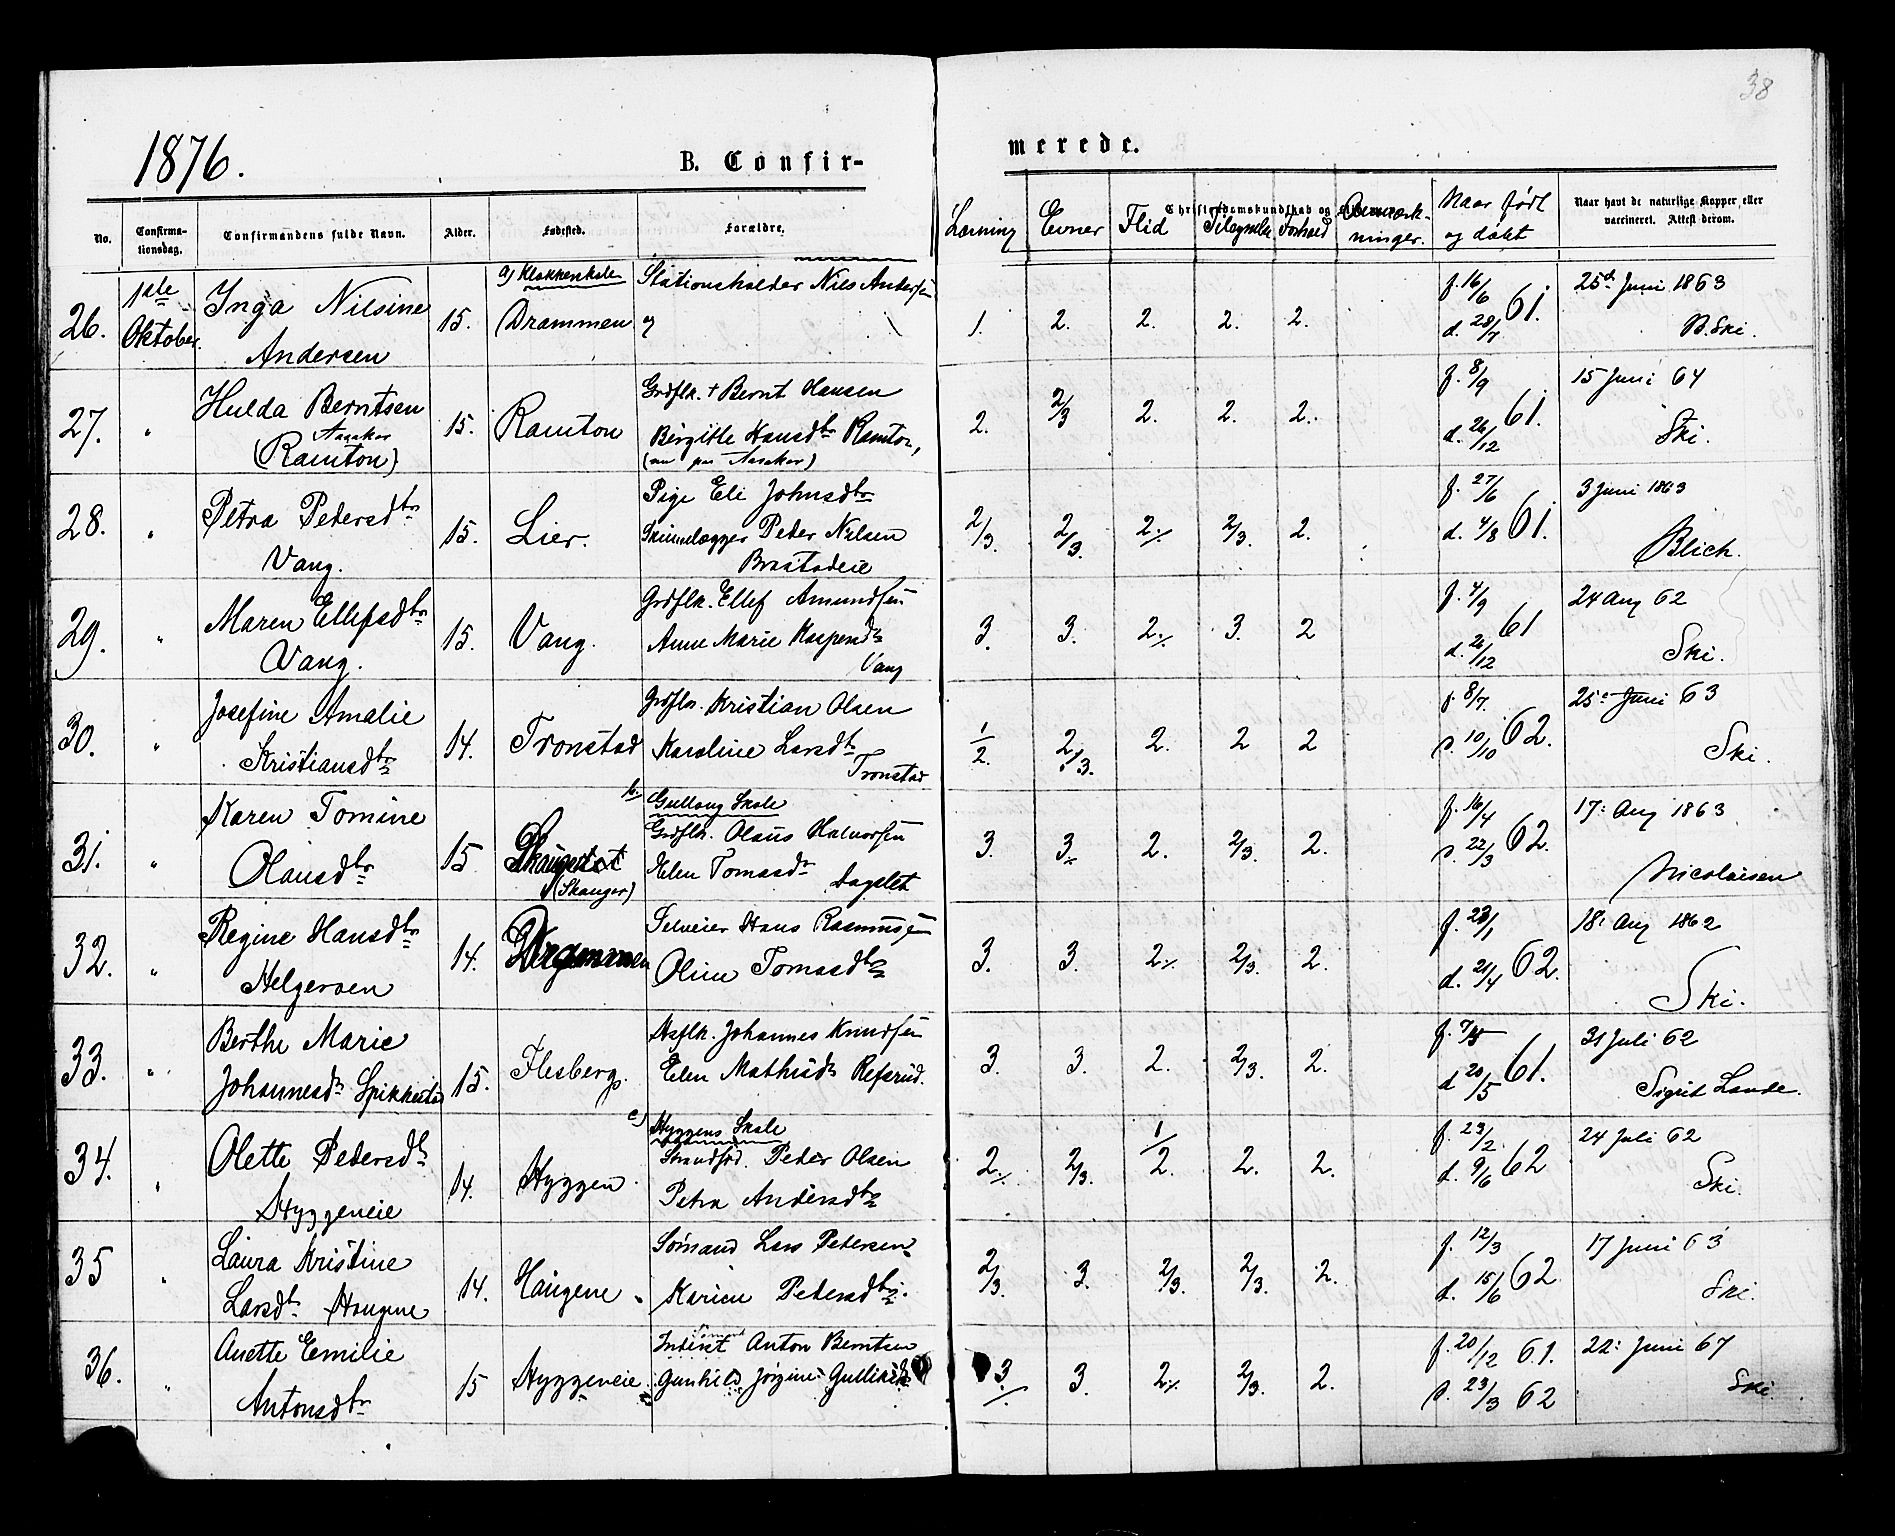 38
1876.
B. Confir-
merede.
No.
Confirma-
tionsdag.
Confirmandens fulde Navn.
Alder.
Fødested.
Forældre.
Læsning
Evner
Flid
Christendomskundskab og
Tilegnelse
Forhold
Bemærk-
ninger.
Naar født
og døbt
Naar havt de naturlige Kopper eller
vaccineret. Attest derom.
26.
1ste
Oktober.
Inga Nilsine
Andersen
15.
a) Klokkerskole
Drammen
Stationsholder Nils Andersen
og
1.
2.
2.
2.
2.
f. 16/6
d. 28/7 61.
25d Juni 1863
B. Ski.
27.
"
Hulda Berntsen
Aasaker
(Ramton)
15.
Ramton
Grdflk. + Bernt Hansen
Birgitte Hansdtr Ramton,
(nu paa Aasaker)
2.
2/3
2.
2.
2.
f. 8/9
d. 26/12 61.
15 Juni 64
Ski.
28.
"
Petra Pedersdtr
Vang.
15.
Lier.
Pige Eli Johnsdtr
Skinnelægger Peder Nilsen
Brastadeie
2/3.
2/3.
2.
2/3.
2.
f. 27/6
d. 4/8 61.
3 Juni 1863
Blich.
29.
"
Maren Ellefsdtr
Vang.
15.
Vang.
Grdflk. Ellef Amundsen
Anne Marie Kaspersdtr
Vang
3.
3.
2.
3.
2
f. 4/9
d. 26/12 61
24 Aug 62
Ski.
30.
"
Josefine Amalie
Kristiansdtr
14.
Tronstad
Grdflk. Kristian Olsen
Karoline Larsdtr
Tronstad
1/2.
2/3.
2.
2
2
f. 8/7.
d. 10/10 62.
25d Juni 63
Ski.
31.
"
Karen Tomine
Olausdtr
15
b.
(Skanger)
Gullaug Skole
Grdflk. Olaus Halvorsen
Helen Tomasdtr
Dagslet
3.
3.
2.
2/3.
2.
f. 16/4
d. 22/3 62.
17: Aug 1863
Nicolaisen
32.
"
Regine Hansdtr
Helgersen
14.
Drammen
Selveier Hans Rasmussen
Oline Tomasdtr
3.
3.
2.
2/3.
2.
f. 23/1
d. 21/4 62.
18: Aug 1862
Ski.
33.
"
Berthe Marie
Johannesdtr Spikkestad
15.
Flesberg.
Hsflk. Johannes Knudsen
Elen Mathisdtr Refsrud.
3.
3.
2.
2/3.
2.
f. 7/5
d 20/5 61.
31 Juli 62
Sigrid Lande.
34.
"
Olette Pedersdtr
Hyggeneie
14.
c)
Hyggen.
Hyggens Skole
Strandsid. Peder Olsen
Petra Andersdtr
2.
2/3.
1/2.
2.
2.
f. 23/2.
d. 9/6 62
24 Juli 62
Ski.
35
"
Laura Kristine
Larsdtr Haugene
14.
Haugene
Sømand Lars Petersen
Karien Pedersdtr.
2/3.
3.
2/3.
2/3.
2.
f. 12/3
d. 15/6 62
17 Juni 63
Ski.
36.
"
Anette Emilie
Antonsdtr
15
Hyggeneie
Sømand
Inderst Anton Berntsen
Gunhild Jørgine Gulliksdtr
3.
3.
2.
2/3.
2.
f. 20/12 61.
d. 23/3 62
22: Juni 67
Ski.